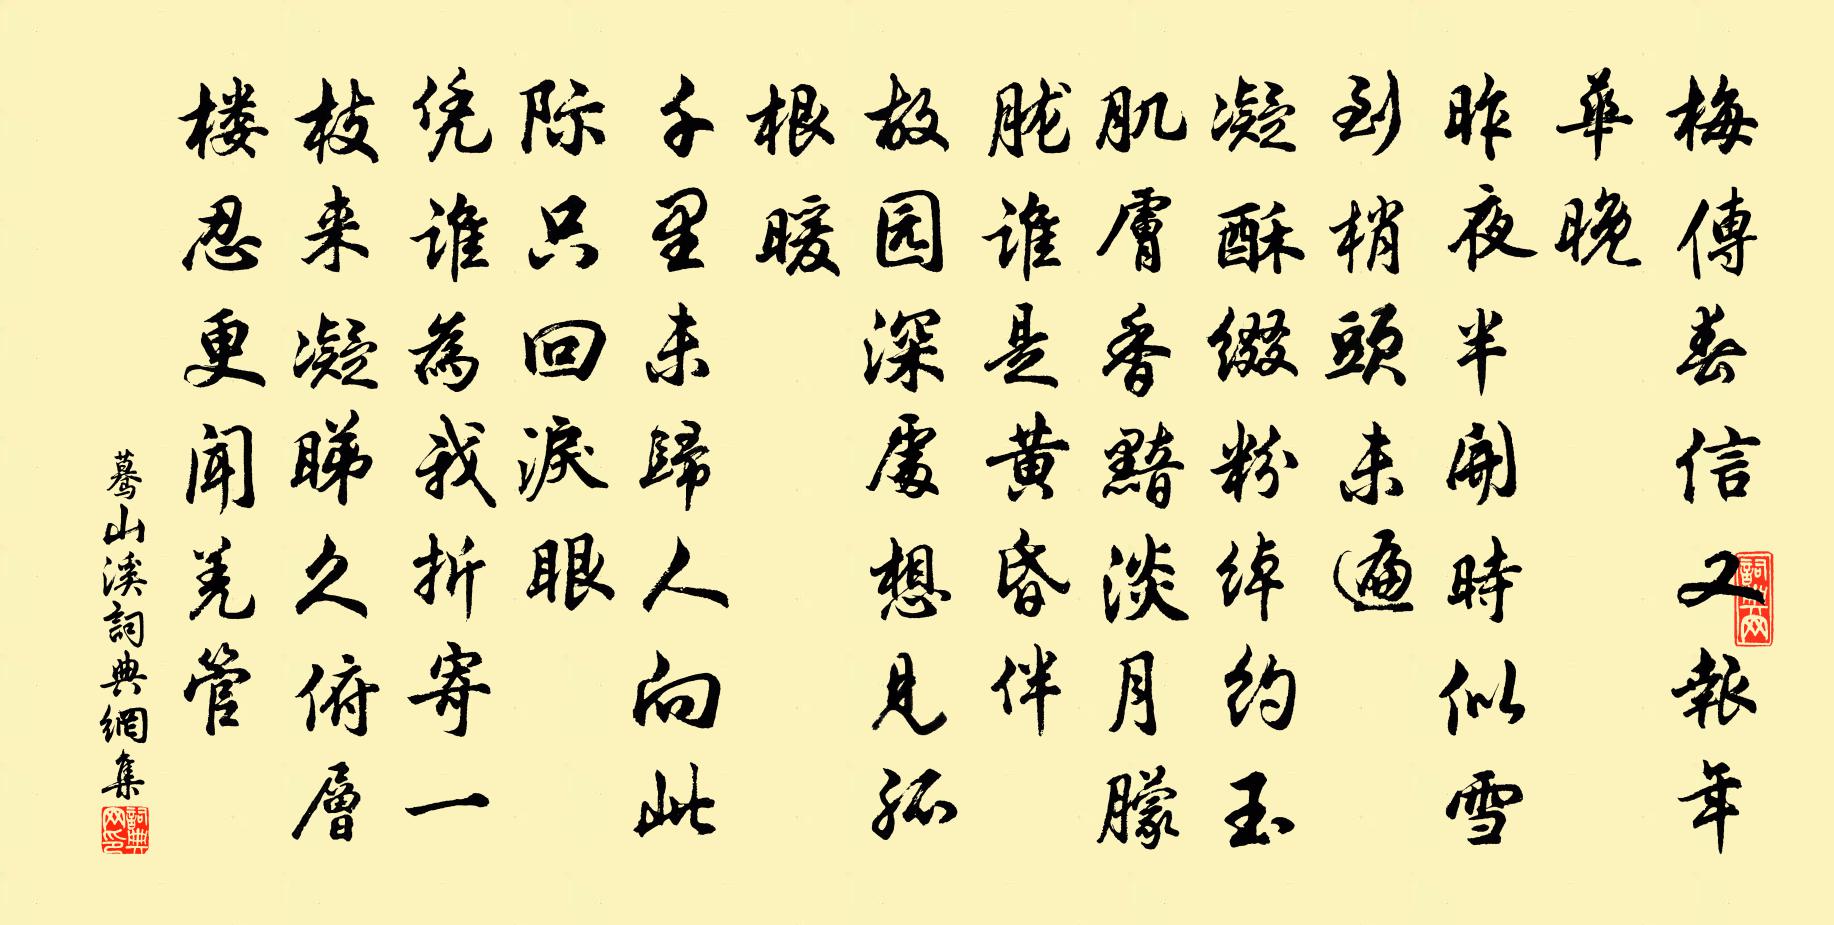 梅傳春信又報年
華晚
昨夜半開時似雪
到梢頭未遍
凝酥綴粉綽約玉
肌膚香黯淡月朦
胧誰是黄昏伴
故园深處想見孤
根暖
千里未歸人向此
际只回淚眼
凭誰為我折寄一
枝来凝睇久俯層
楼忍更聞羌管
蓦山溪詞典網集
詞典網
詞典網印